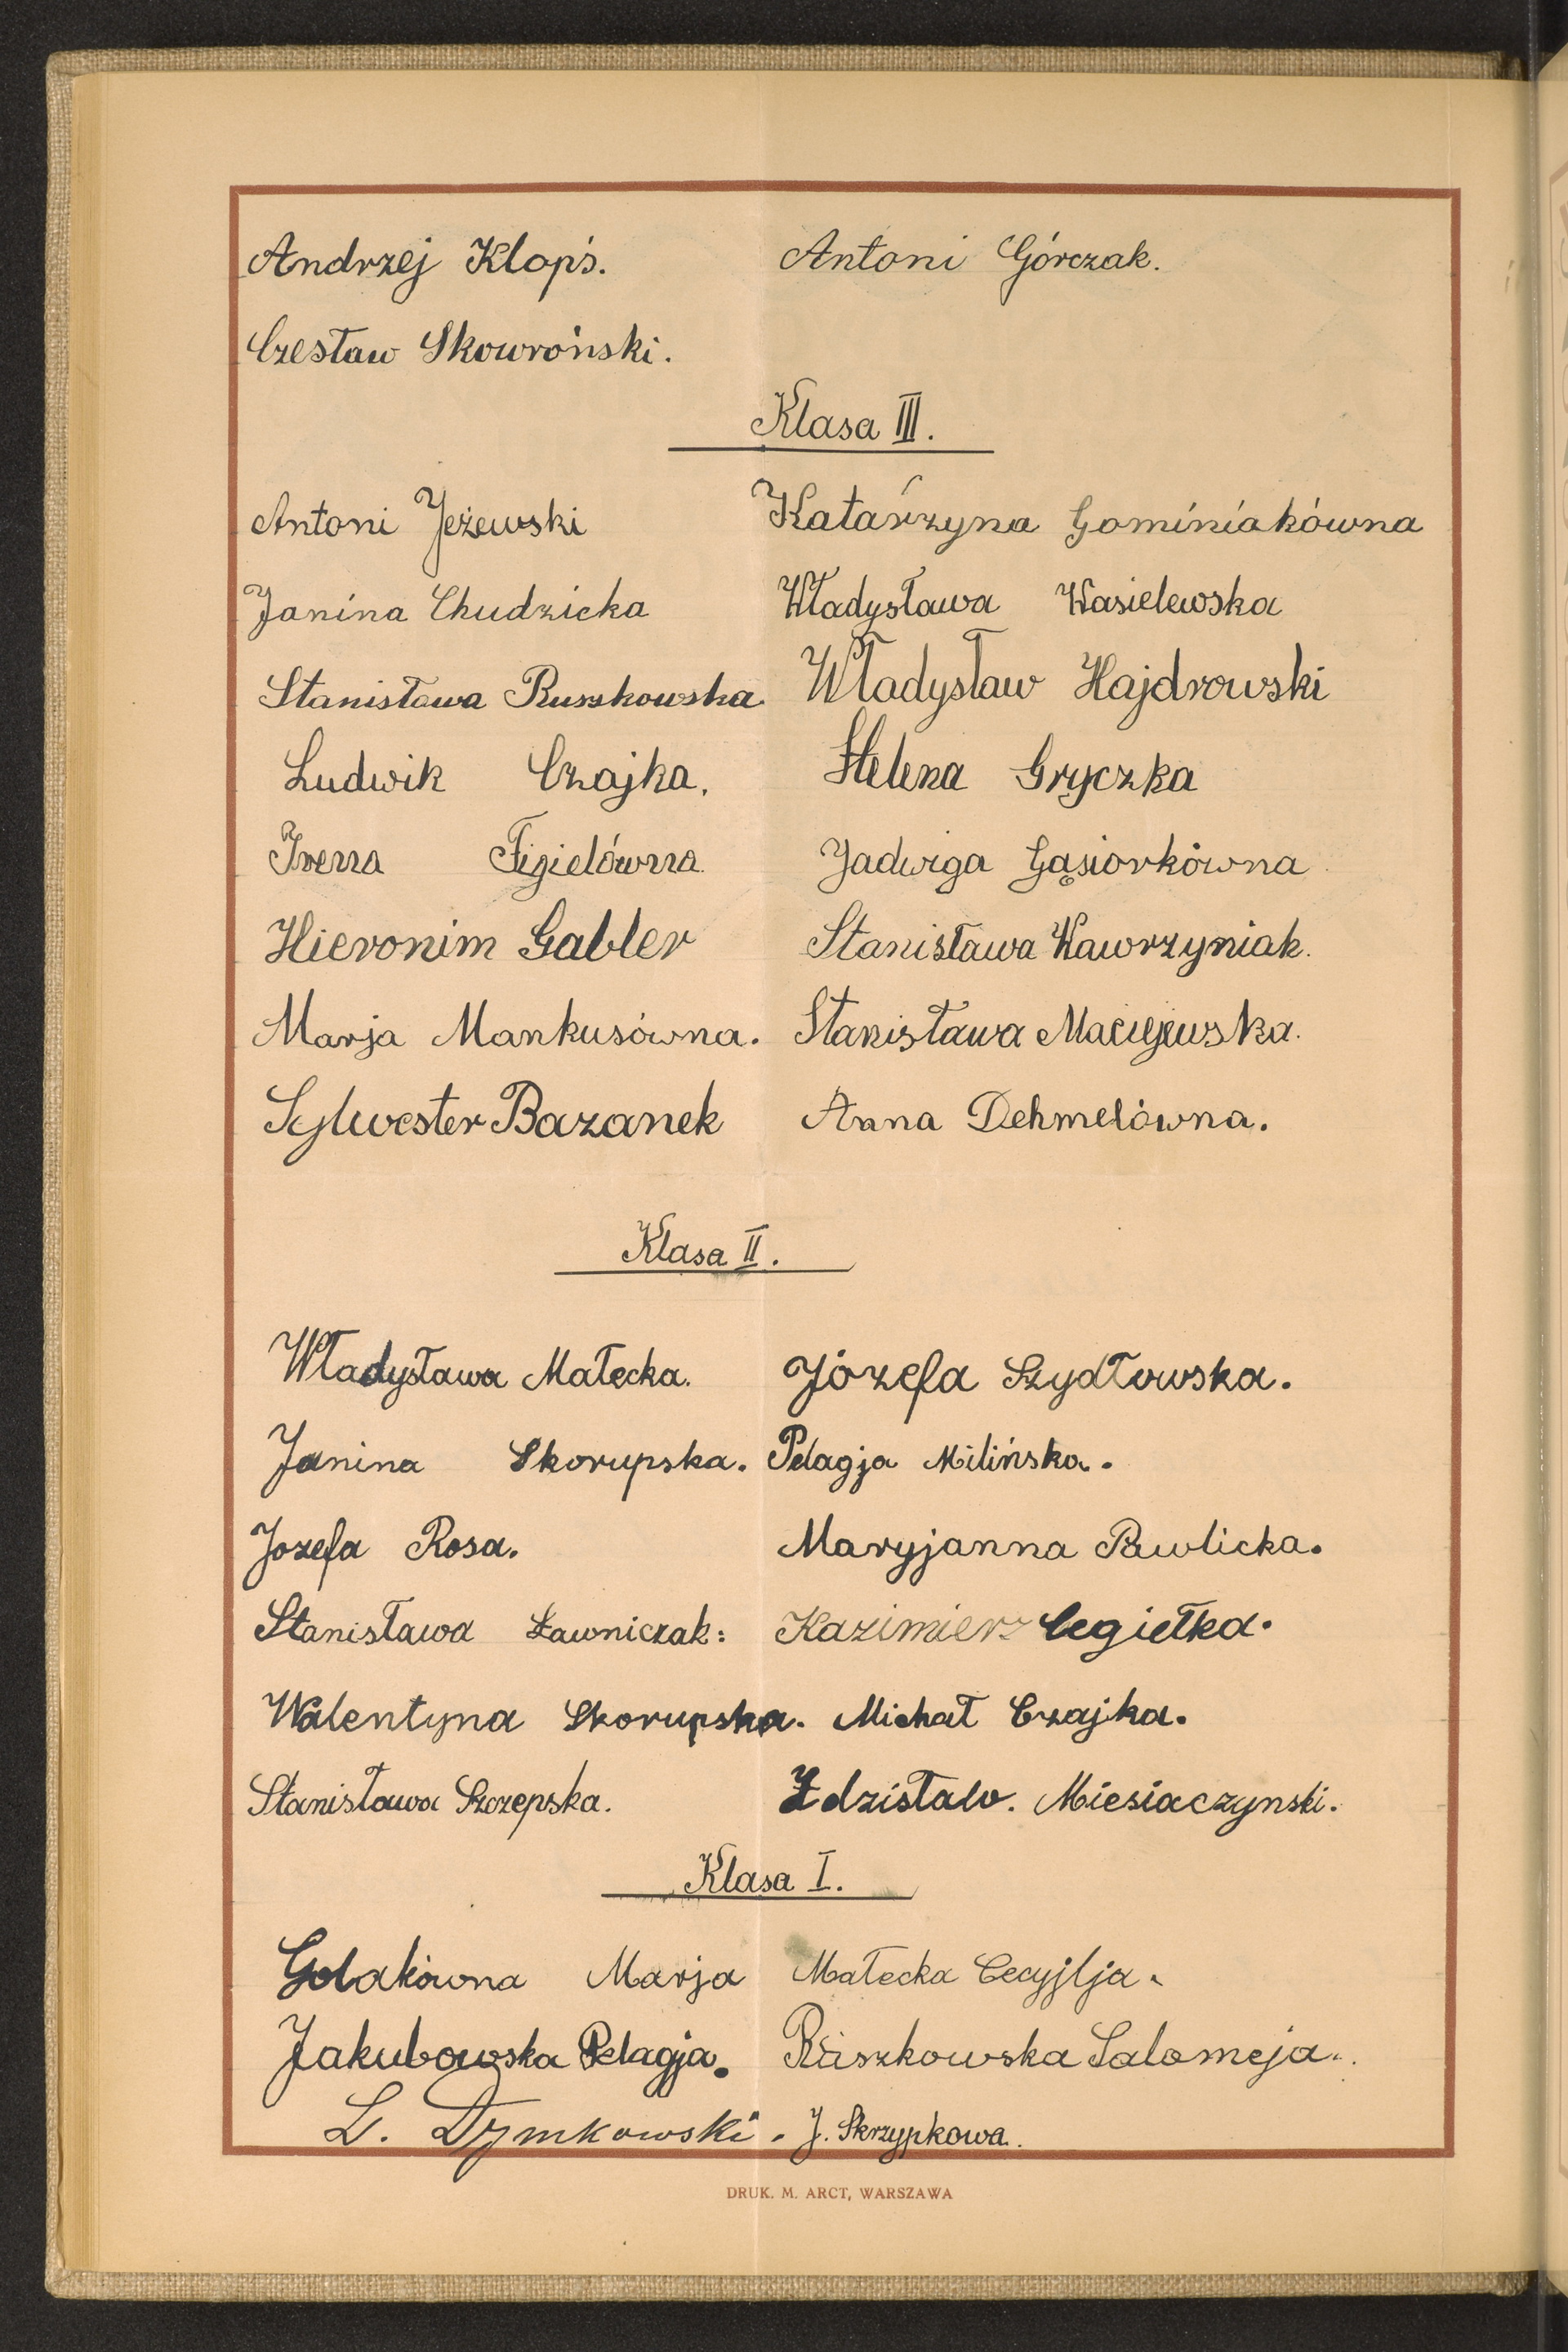 Andrzej Klopś. Antoni Górczak.
Czesław Skowroński.
Klasa III.
Antoni Jeżewski Katarzyna Gominiakówna
Janina Chudzicka Władysława Wasielewska
Stanisława Ruszkowska. Władysław Hajdrowski
Ludwik Czajka. Helena Gryczka
Irena Figielówna. Jadwiga Gąsiorkówna
Hieronim Gabler Stanisława Wawrzyniak.
Marja Mankusówna. Stanisława Maciejewska.
Sylwester Bazanek Anna Dehmelówna.
Klasa II.
Władysława Małecka. Józefa Szydłowska.
Janina Skorupska. Pelagja Milińska.
Jozefa Rosa. Maryjanna Pawlicka.
Stanisława Ławniczak: Kazimierz Cegiełka.
Walentyna Skorupska. Michał Czajka.
Stanisława Szczepska. Zdzisław. Miesiaczynski.
Klasa I.
Golakówna Marja Małecka Cecyjlja.
Jakubowska Pelagja. Ruszkowska Salomeja.
L. Dymkowski. J. Skrzypkowa.
DRUK. M. ARCT, WARSZAWA